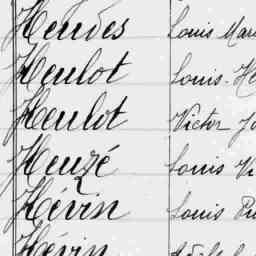 Heudes Louis Mari
Heulot Louis-He
Heulot Victor Jo
Heuzé Louis Vi
Hévin Louis
Hévin